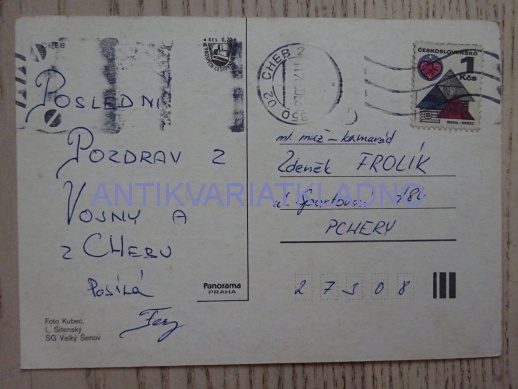 CHEB
POSLEDNÍ
POZDRAV Z
VOJNY A
Z CHEBU
POSÍLÁ
Foto Kubec,
L. Sitenský
SG Velký Šenov
Panorama
PRAHA
350 02 CHEB 2
ČESKOSLOVENSKO
1
Kčs
ml. muž - kamarád
Zdeněk FROLÍK
ul. Sportovní 184
PCHERY
27308
ANTIKVARIATKLADNO